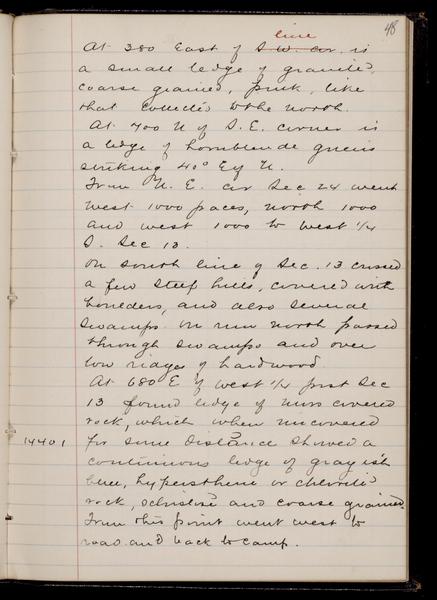 48
line
At 380 East of S.W. cor. is
a small ledge of granite,
coarse grained, pink, like
that collected to the north.
At 700 N of S.E. corner is
a ledge of hornblende gneiss
striking 40° E of N.
From N.E. cor Sec 24 went
West 1000 paces, north 1000
and west 1000 to West 1/4
S. Sec 13.
On south line of Sec. 13 crossed
a few steep hills, covered with
boulders, and also several
swamps. On run north passed
through swamps and over
low ridges of hardwood.
At 680 E of west 1/4 post Sec
13 found ledge of moss covered
rock, which when uncovered
14401 for some distance showed a
continuous ledge of grayish
blue, hypersthene or chloritic
rock, schistose and coarse grained.
From this point went west to
road and back to camp.